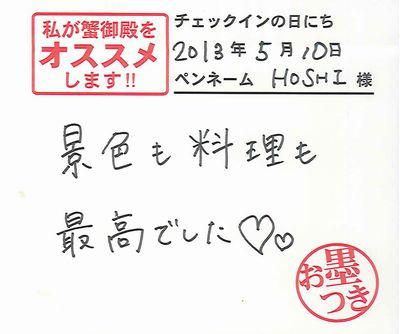 私が蟹御殿を
オススメ
します!!
チェックインの日にち
2013年5月10日
ペンネーム HOSHI 様
景色も料理も
最高でした♡♡
お墨つき